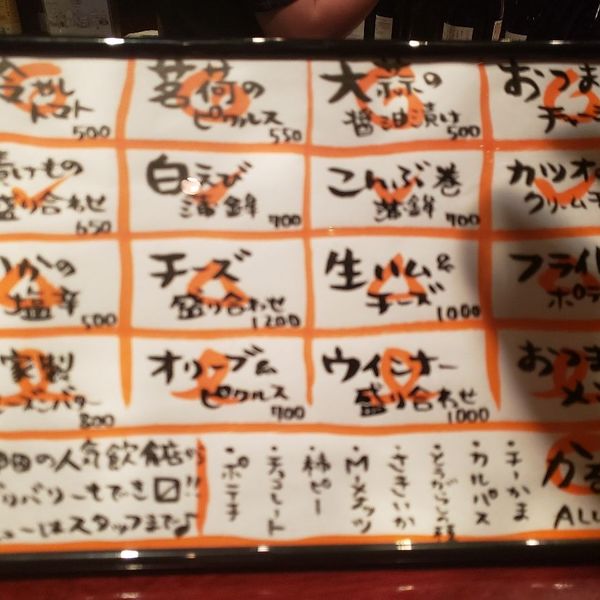 冷やし
トマト
500
茗荷の
ピクルス
550
大蒜の
醤油漬け
500
おつま
チャー
漬けもの
盛り合わせ
650
白えび
蒲鉾
700
こんぶ巻
蒲鉾
700
カツオの
クリームチ
いかの
塩辛
500
チーズ
盛り合わせ
1200
生ハム&
チーズ
1000
フライド
ポテ
家製
ーズンバター
800
オリーブ&
ピクルス
700
ウインナー
盛り合わせ
1000
おつま
メ
の人気飲食店から
バリーもでき〼!!
ューはスタッフまで♪
・ポテチ
・チョコレート
・柿ピー
・Mixナッツ
・さきいか
・とうがらしの種
・カルパス
・チーかま
かる
ALL